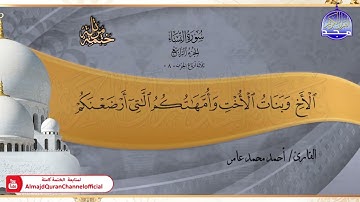 سورة النساء
الجزء الرابع
الأخ وبنات الأخت وأمهاتكم التي أرضعنكم
القارئ / أحمد محمد عامر
لمتابعة الختمة كاملة
AlmajdQuranChannelofficial